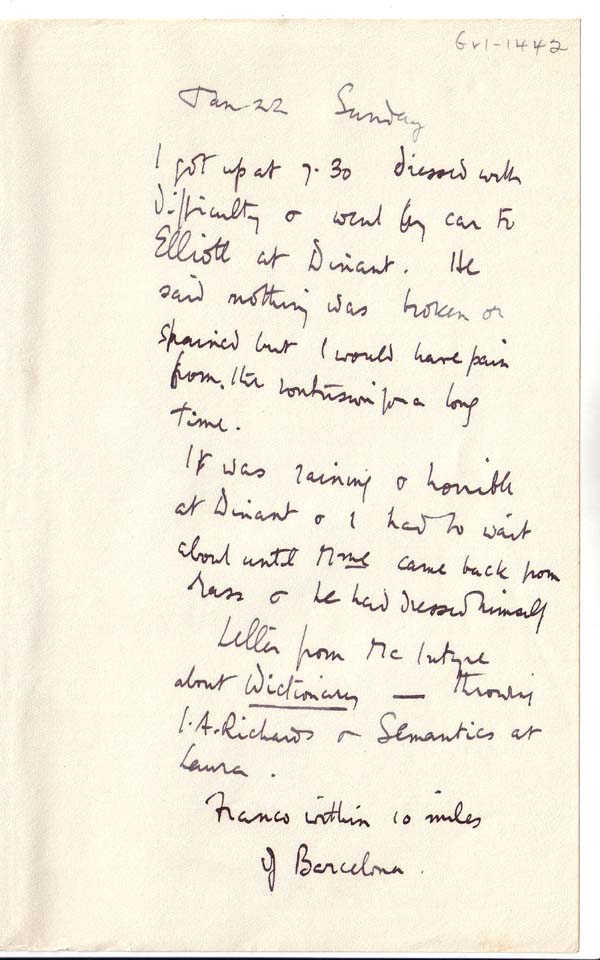 Gv1-1442
Jan-22 Sunday
I got up at 7.30 dressed with
difficulty & went by car to
Elliott at Dinant. He
said nothing was broken or
sprained but I would have pain
from the contusion for a long
time.
It was raining & horrible
at Dinant & I had to wait
about until Mme came back from
Mass & he had dressed himself
Letter from McIntyre
about Dictionary — throwing
I.A. Richards & Semantics at
Laura.
Franco within 10 miles
of Barcelona.